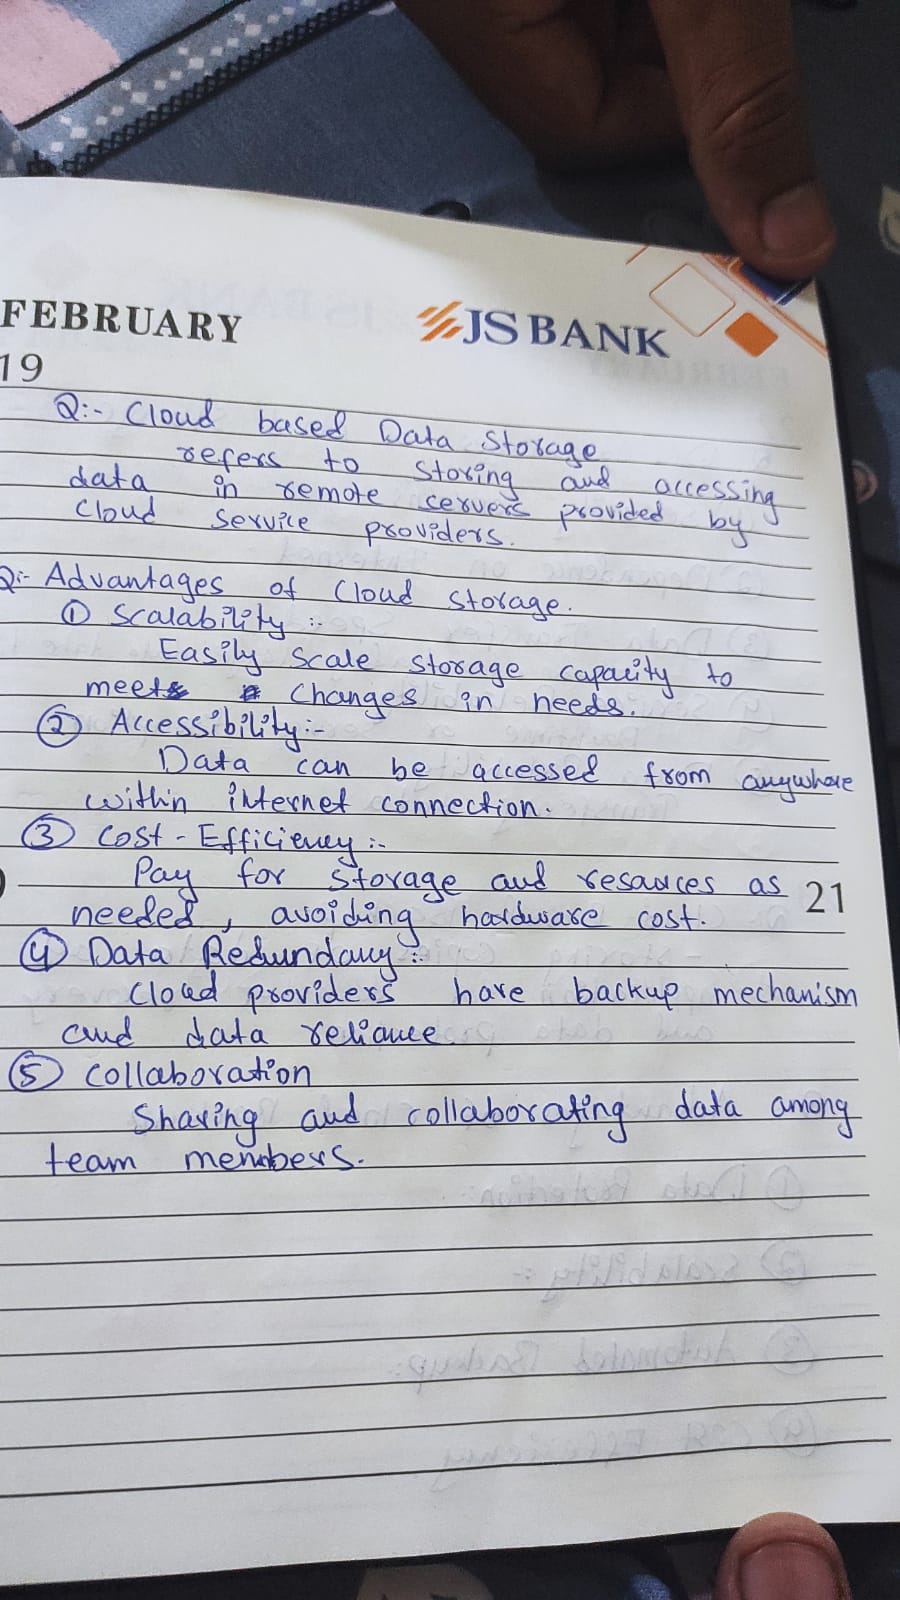 FEBRUARY
JS BANK
19
Q:- Cloud based Data Storage
refers to storing and accessing
data in remote servers provided by
cloud service providers.
Q:- Advantages of Cloud Storage.
① Scalability :-
Easily scale storage capacity to
meet changes in needs.
② Accessibility:-
Data can be accessed from anywhere
within internet connection.
③ Cost-Efficiency :-
Pay for storage and resources as
21
needed, avoiding hardware cost.
④ Data Redundancy :-
Cloud providers have backup mechanism
and data reliance
⑤ Collaboration
Sharing and collaborating data among
team members.